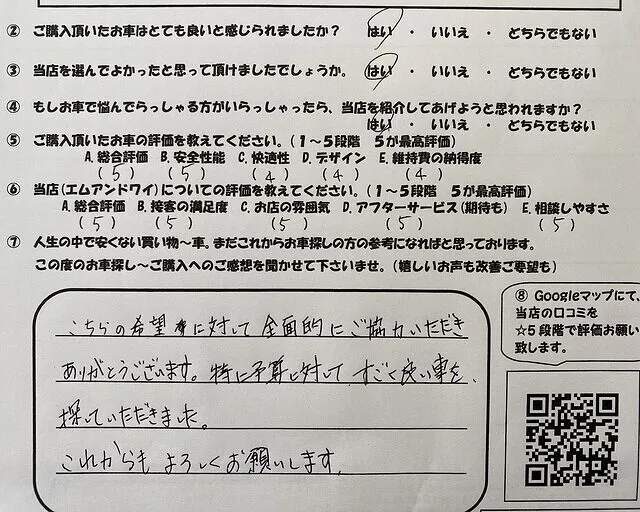 ② ご購入頂いたお車はとても良いと感じられましたか？ はい ・ いいえ ・ どちらでもない
③ 当店を選んでよかったと思って頂けましたでしょうか。 はい ・ いいえ ・ どちらでもない
④ もしお車で悩んでらっしゃる方がいらっしゃったら、当店を紹介してあげようと思われますか？
はい ・ いいえ ・ どちらでもない
⑤ ご購入頂いたお車の評価を教えてください。（１～５段階 ５が最高評価）
A. 総合評価 B. 安全性能 C. 快適性 D. デザイン E. 維持費の納得度
（5） （5） （4） （4） （4）
⑥ 当店（エムアンドワイ）についての評価を教えてください。（１～５段階 ５が最高評価）
A. 総合評価 B. 接客の満足度 C. お店の雰囲気 D. アフターサービス（期待も） E. 相談しやすさ
（5） （5） （5） （5） （5）
⑦ 人生の中で安くない買い物～車。まだこれからお車探しの方の参考になればと思っております。
この度のお車探し～ご購入へのご感想を聞かせて下さいませ。（嬉しいお声も改善ご要望も）
こちらの希望に対して全面的にご協力いただき
ありがとうございます。特に予算に対してすごく良い車を、
探していただきました。
これからもよろしくお願いします。
⑧ Googleマップにて、
当店の口コミを
☆５段階で評価お願い
致します。